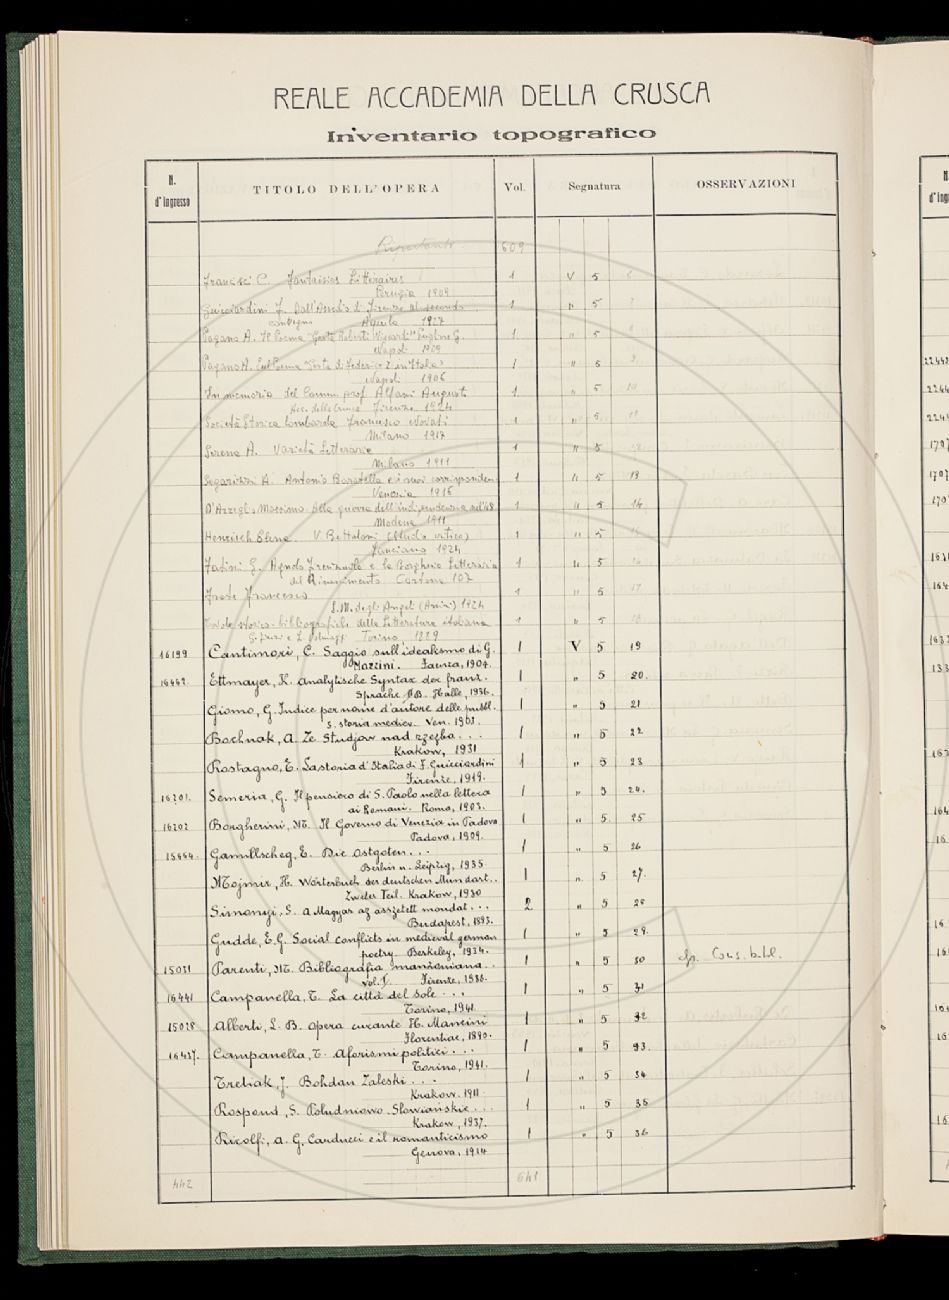 REALE ACCADEMIA DELLA CRUSCA
Inventario topografico
N. d'Ingresso TITOLO DELL'OPERA Vol. Segnatura OSSERVAZIONI
609
Francisci C. Fantaisies Littéraires 1 V 5
Perugia 1909
Guicciardini F. Dall'Assedio di Firenze al secondo 1 " 5
convegno Aquila 1927
Pagano A. Il Poema "Gesta Roberti Wiscardi" Guglmo G. 1 " 5
Napoli 1909
Pagano A. Sul Poema "Gesta di Federico I in Italia" 1 " 5 9
Napoli 1906
In memoria del Comm. prof. Alfani Augusto 1 " 5 10
Acc. della Crusca Firenze 1924
Società Storica Lombarda Francesco Novati 1 " 5 11
Milano 1917
Serena A. Varietà Letterarie 1 " 5 12
Milano 1911
Segarizzi A. Antonio Baratella e i suoi corrispondenti 1 " 5 13
Venezia 1916
D'Azeglio Massimo della guerra dell'indipendenza nel '48 1 " 5 14
Modena 1911
Henrisch Elena. V. Betteloni (Studio critico) 1 " 5
Lanciano 1924
Fatini G. Agnolo Firenzuola e la Borghesia Letteraria 1 " 5
del Rinascimento Cortona 107
Francesco 1 " 5 17
S. M. degli Angeli (Assisi) 1924
Tavole storico-bibliografiche della Letteratura italiana 1 " 5 18
Torino, 1889
16199 Cantimori, C. Saggio sull'idealismo di G. 1 V 5 19
Mazzini. Faenza, 1904.
16462 Ettmayer, K. Analytische Syntax der franz. 1 " 5 20.
Sprache II B. Halle, 1936.
Giomo, G. Indice per nome d'autore delle pubbl. 1 " 5 21
s. storia mediev. Ven. 1903.
Bochnak, A. Ze Studjow nad rzezba... 1 " 5 22
Krakow, 1931
Rostagno, E. La storia d'Italia di F. Guicciardini 1 " 5 23
Firenze, 1919.
16201. Semeria, G. Il pensiero di S. Paolo nella lettera 1 " 5 24.
ai Romani. Roma, 1903.
16202 Borgherini, M. Il Governo di Venezia in Padova 1 " 5 25
Padova, 1909.
15664. Gamillscheg, E. Die Ostgoten... 1 " 5 26
Berlin u. Leipzig, 1935
Mojmir, H. Wörterbuch der deutschen Mundart.. 1 " 5 27.
Zweiter Teil. Krakow, 1930
Simonyi, S. A Magyar az asszetett mondat... 2 " 5 28
Budapest, 1893.
Gudde, E. G. Social conflicts in medieval german 1 " 5 29.
poetry. Berkeley, 1934.
15031 Parenti, M. Bibliografia manzoniana.. 1 " 5 30
vol. I. Firenze, 1936.
16441 Campanella, T. La città del Sole... 1 " 5 31
Torino, 1941.
15028 Alberti, L. B. Opera curante H. Mancini 1 " 5 32
Florentiae, 1890.
16437. Campanella, T. Aforismi politici... 1 " 5 33.
Torino, 1941.
Tretiak, J. Bohdan Zaleski... 1 " 5 34
Krakow, 1911.
Rospond, S. Poludniowo-Slowiańskie... 1 " 5 35
Krakow, 1937.
Ricolfi, A. G. Carducci e il romanticismo 1 " 5 36
Genova, 1914
442 641